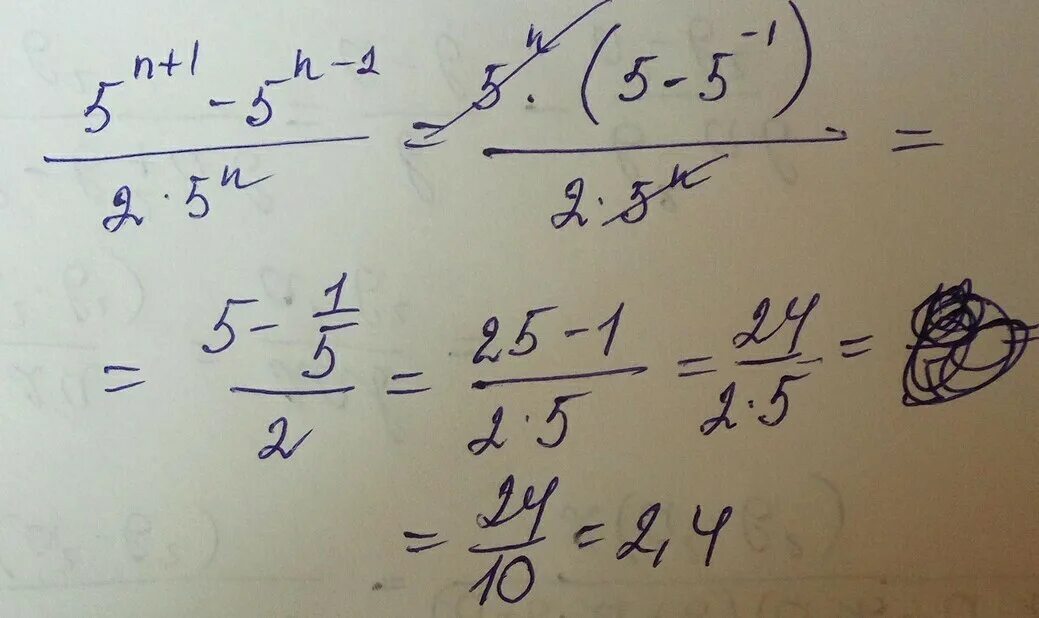 (5^(n+1) - 5^(n-1)) / (2 · 5^n) = (5^n · (5 - 5^(-1))) / (2 · 5^n) =
= (5 - 1/5) / 2 = (25 - 1) / (2 · 5) = 24 / (2 · 5) =
= 24 / 10 = 2,4